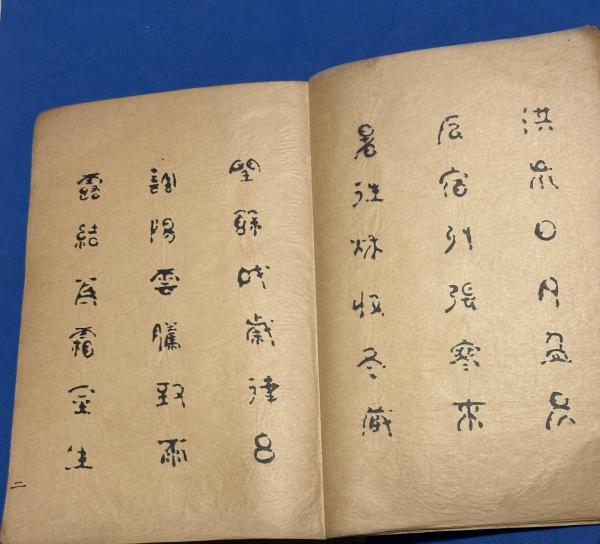 洪荒日月盈昃
辰宿列張寒來
暑往秋收冬藏
閏餘成歲律呂
調陽雲騰致雨
露結為霜金生
二